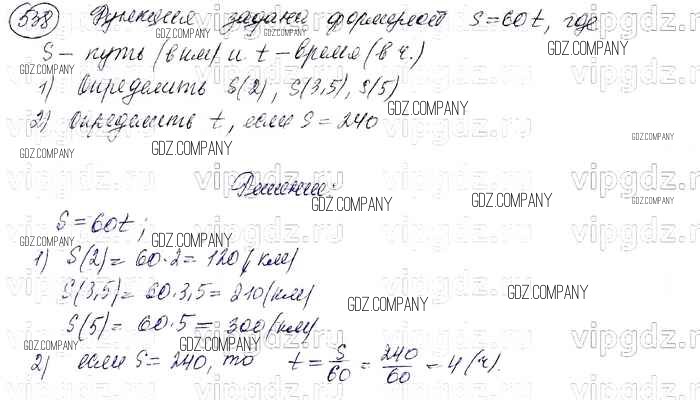 538 Функция задана формулой S=60t, где
S – путь (в км) и t – время (в ч.)
1) Определить S(2), S(3,5), S(5)
2) определить t, если S = 240
Решение:
S=60t;
1) S(2) = 60·2 = 120 (км)
S(3,5) = 60·3,5 = 210 (км)
S(5) = 60·5 = 300 (км)
2) если S = 240, то t = S/60 = 240/60 = 4 (ч).